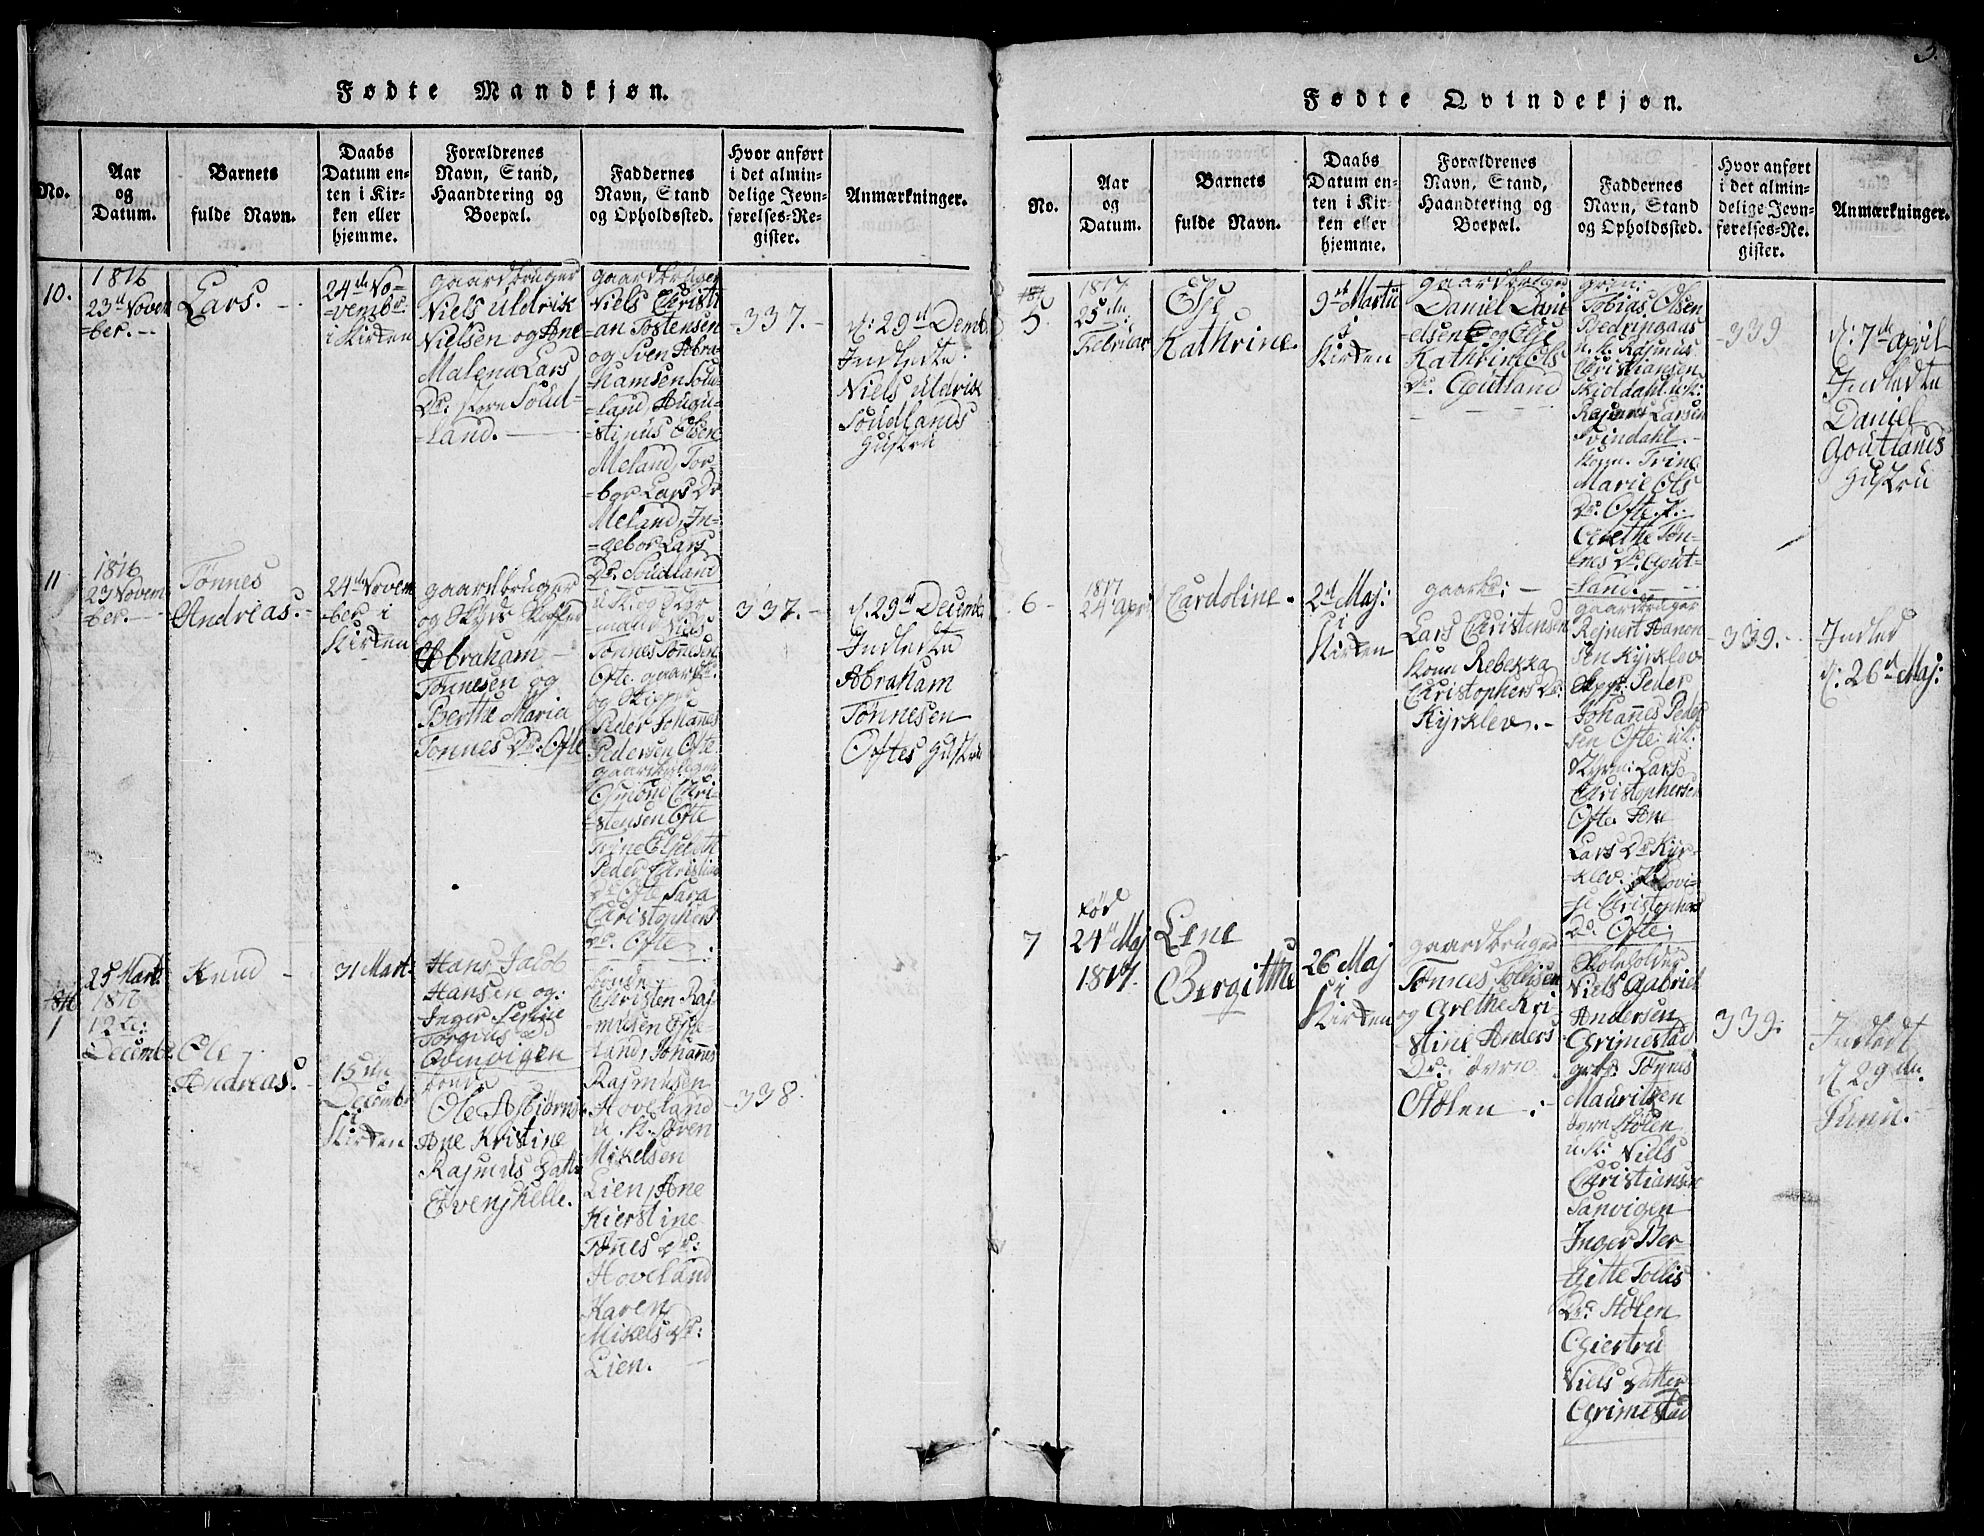 Fødte Mandkjøn.
No.
Aar
og
Datum.
Barnets
fulde Navn.
Daabs
Datum en-
ten i Kir-
ken eller
hjemme.
Forældrenes
Navn, Stand,
Haandtering og
Boepæl.
Faddernes
Navn, Stand
og Opholdssted.
Hvor anført
i det almin-
delige Jevn-
førelses-Re-
gister.
Anmærkninger.
10.
1816
23d Novem
=ber.
Lars.
24de No-
=vembr
i Kirken
gaardbruger
Niels Uldrik
Nielsen og Ane
Malena Lars
Dr: store Soud-
land.
gaardbruger
Niels Christi
an Tostensen
og Sven Abra-
hamsen Soud-
land, Augu-
stinus Olsen
Meland, Tor-
=bor Lars Dr
Meland, In-
=gebor Lars
Dr. Soudland
337.
d: 29d Demb.
Indledte
Niels Uldrik
Soudlands
Hustru
11
1816
23 Novem
ber.
Tønnes
Andreas.
24de Novem
ber i
Kirken
gaardbruger
og
Abraham
Tønnesen og
Berthe Maria
Tonnes Dr: Ofte
Niels
Tønnes Tønnesen
Ofte gaardbr:
og Skipper
Peder Johannes
Pedersen Ofte
gaardbruger
Christensen Ofte
Trine Elsebeth
Peder Christian
Dr Ofte Sara
Christophers
Dr. Ofte
337.
d. 29d Decemb
Indledte
Abraham
Tønnesen
Oftes Hustru
1816
1
25 Marti
1816
12te:
Decembr
Knud
Ole
Andreas.
31 Mart.
15de
Decembr
i
Kirken
Hans Jacob
Hansen og:
Inger Serine
Torgius
Qvinvigen
bonde
Ole Asbiørns
Ane Kristine
Rasmus Datter
Evenskelle.
Christen Ras
musen Eske
land, Johannes
Rasmusen
Hoveland
u. K. Søren
Mikelsen
Lien, Ane
Kierstine
Tønes Dr:
Hoveland
Karen
Mikels Dr:
Lien.
338.
3.
Fødte Qvindekjøn.
No.
Aar
og
Datum.
Barnets
fulde Navn.
Daabs
Datum en-
ten i Kir-
ken eller
hjemme.
Forældrenes
Navn, Stand,
Haandtering og
Boepæl.
Faddernes
Navn, Stand
og Opholdssted.
Hvor anført
i det almin-
delige Jevn-
førelses-Re-
gister.
Anmærkninger.
5.
1817
25de
Februar
Else
Kathrine.
9de Martii
i
Kirken
gaardbruger
Daniel Dani
elsen og Else
Kathrine Ols
Dr. Goutland
Tobias Olsen
Bedringaas
u. k. Rasmus
Christiansen
Skioldahl u.k:
Rasmus Larsen
Svindahl.
Kone Trine
Marie Ols
Dr. Ofte
Grethe Tøn-
nes Dr. Gout-
land.
339
d: 7de April
Indledte
Daniel
Goutlands
Hustru
6
1817
24 Apri
Cardoline.
2d Maj:
i
Kirken
gaardbr:
Lars Christensen
Kone Rebekka
Christophers Dr
Kyrklev.
gaardbruger
Rejnert Hanon
sen Kyrklev
Peder
Johannes Peder
sen Ofte u.k:
Lars
Christophersen
Ofte Ane
Lars Dr Kyr-
klev:
se Christophers
Dr. Ofte
339.
Indled
d: 26d Maj:
7
Fød
24d Maj
1817.
Lene
Bergitthe
26 Maj
i
Kirken
gaardbruger
Tønnes Tollisen
og Grethe Kri
stine Anders
Dr. øvre
Stølen
Skoleholder
Niels Gabriel
Andersen
Grimestad
grbr: Tønnis
Mauritsen
øvre Stølen
u.k: Niels
Christiansen
Sanvigen
Inger Ber-
gitte Tollis
Dr. Stølen
Giertru
Niels Datter
Grimestad
339:
Indledt
d 29de
Junii.